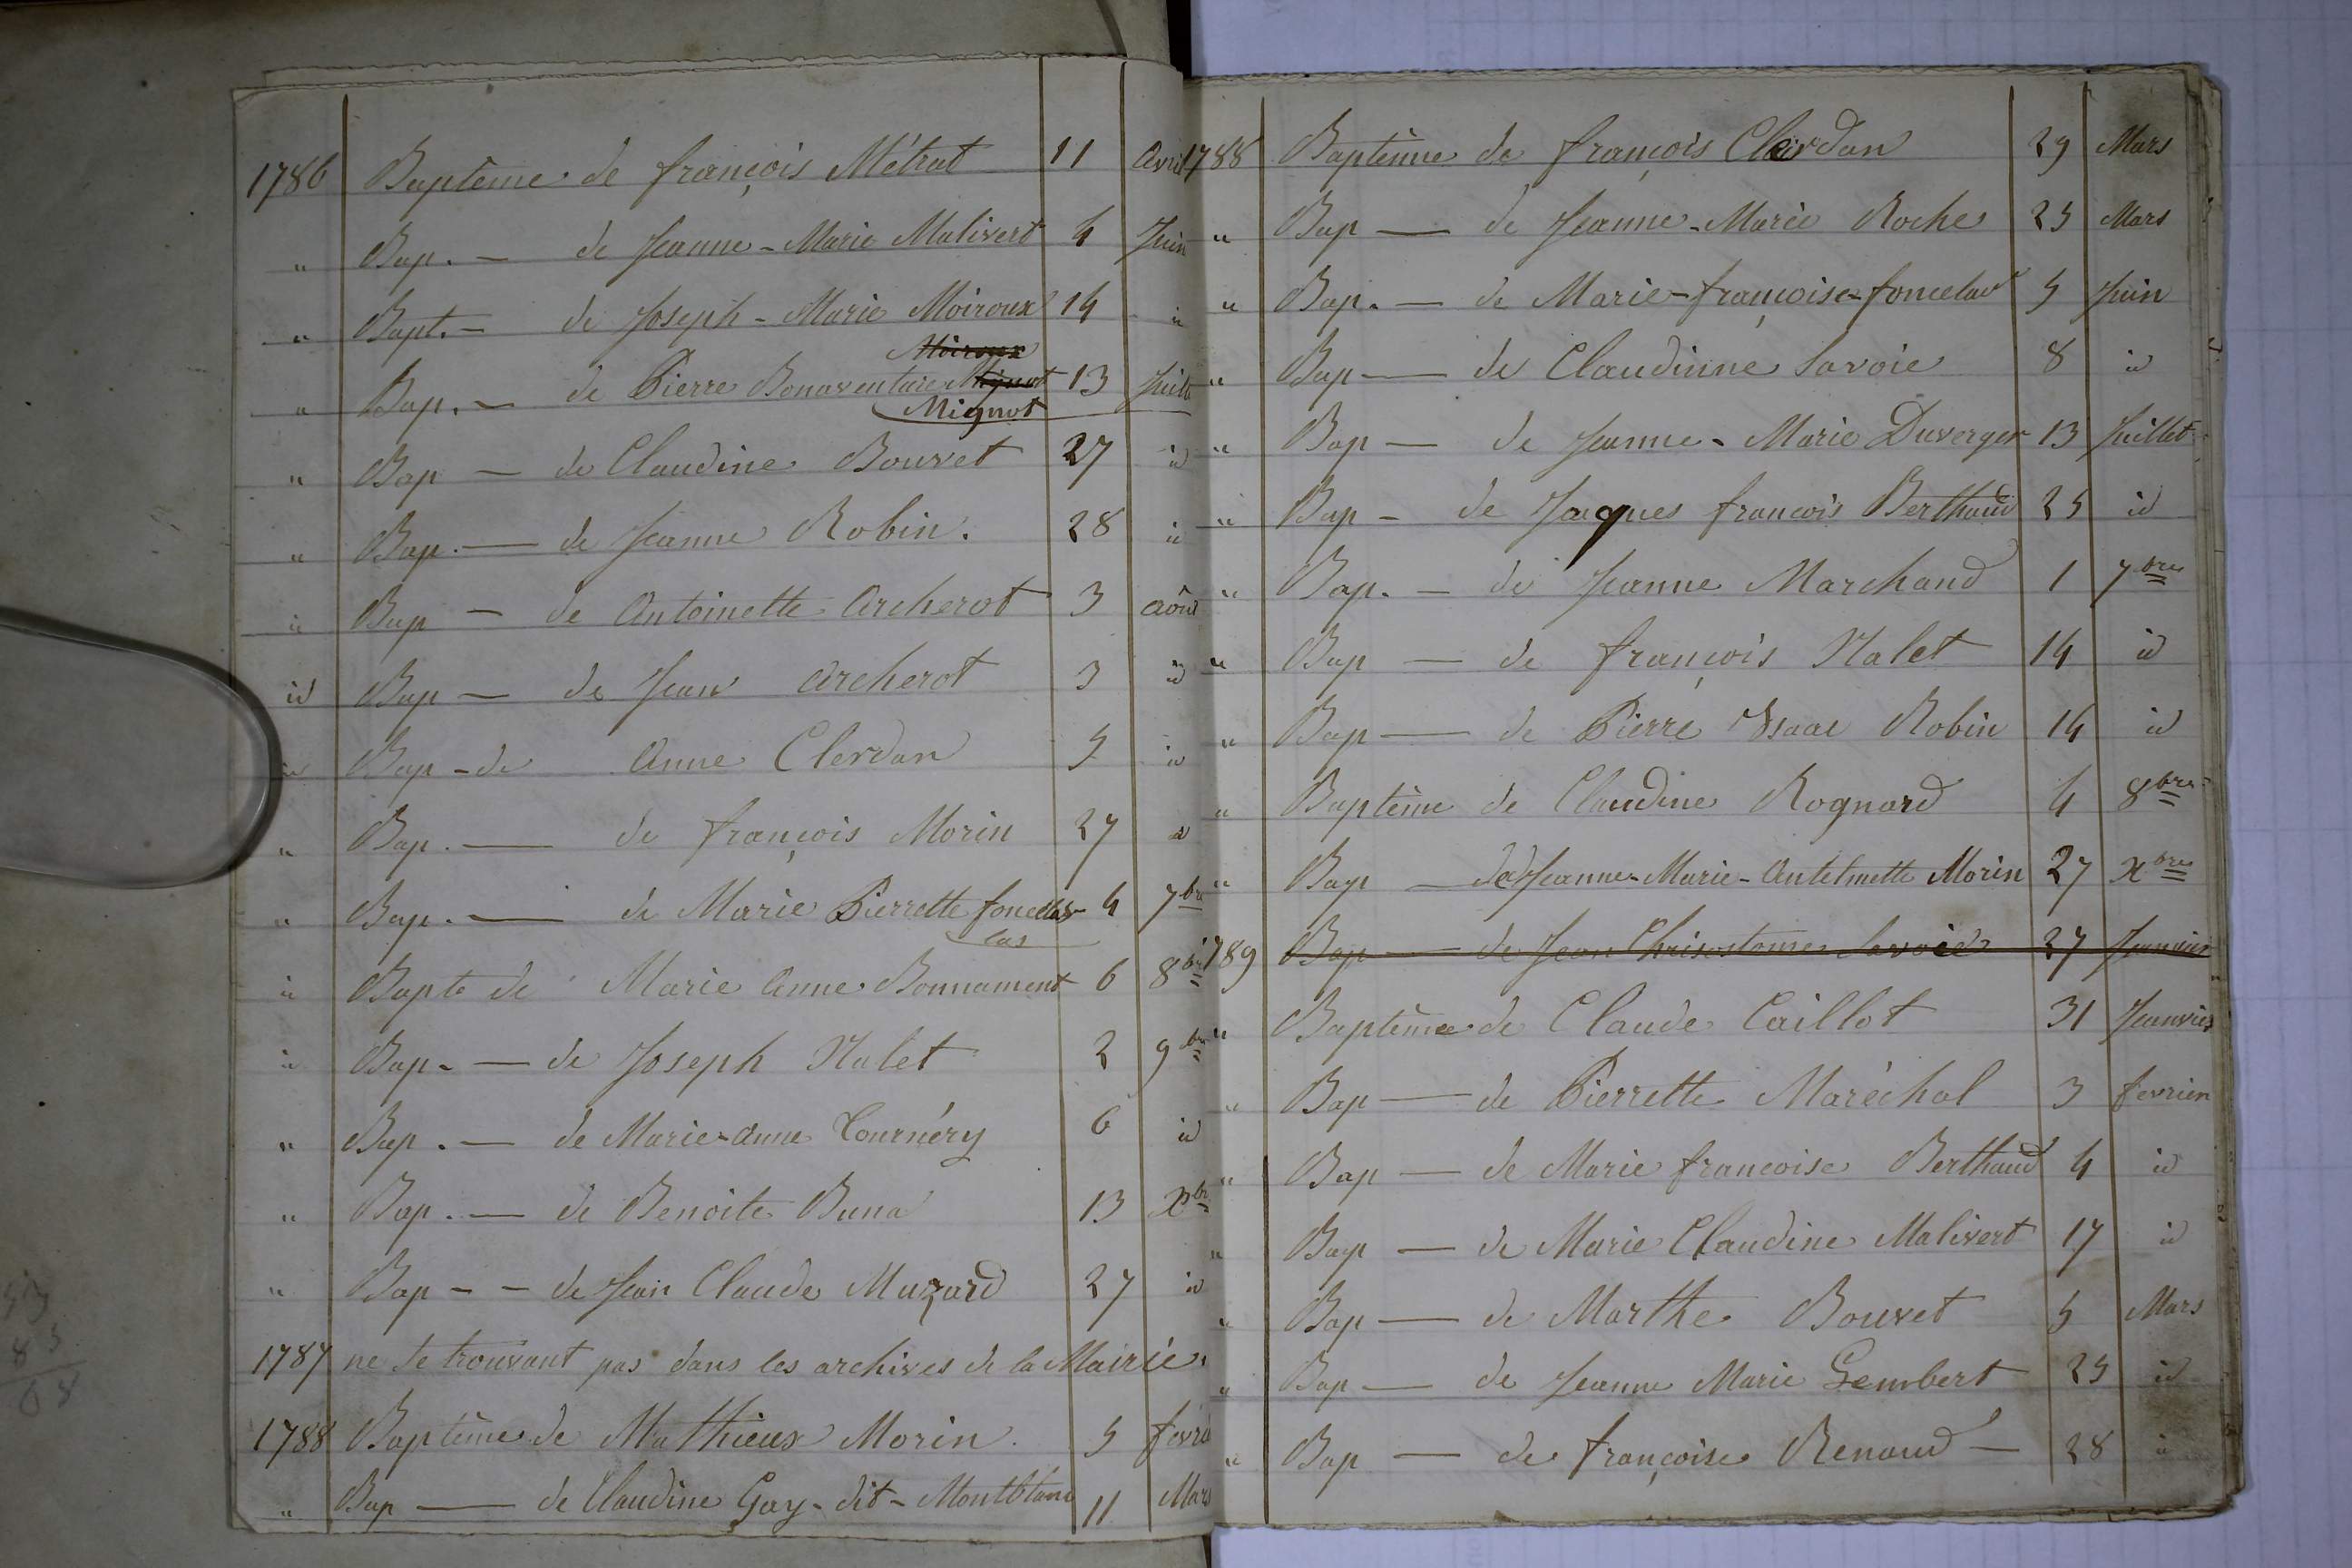 1786 Baptême de françois Métrat 11 avril
" Bap. — de Jeanne-Marie Malivert 4 Juin
" Bapt. — de Joseph-Marie Moiroux 14 id
Moiroux
" Bap. — de Pierre Bonaventure Mignot 13 Juill
Mignot
" Bap — de Claudine Bouvet 27 id
" Bap. — de Jeanne Robin. 28 id
id Bap — de Antoinette Archerot 3 août
id Bap — de Jean Archerot 3 id
id Bap - de Anne Clerdan 5 id
" Bap. — de françois Morin 27 id
" Bap. — de Marie Pierrette 4 7bre
las
id Bapte de Marie Anne Bonnament 6 8bre
id Bap. — de Joseph Nalet 2 9bre
" Bap. — de Marie-Anne Tournéry 6 id
" Bap. — de Benoite Buna 13 Xbr
" Bap - - de Jean Claude Muzard 27 id
1787 ne se trouvant pas dans les archives de la Mairie.
1788 Baptême de Mathieux Morin. 5 fevri
" Bap — de Claudine Gay-dit-Montblanc 11 Mars
1788 Baptême de françois Clerdan 29 Mars
" Bap — de Jeanne-Marie Roche 25 Mars
" Bap. — de Marie-françoise-foncelas 5 Juin
" Bap — de Claudinne Savoie 8 id
" Bap — de Jeanne-Marie Duverger 13 Juillet
" Bap - de Jacques francois Berthaud 25 id
" Bap. — de Jeanne Marchand 1 7bre
" Bap — de françois Nalet 14 id
" Bap — de Pierre Isaac Robin 14 id
" Baptême de Claudine Rognard 4 8bre
" Bap — de Jeanne-Marie-Antelmette Morin 27 Xbre
1789 Bap — de Jean Chrisostome Savoie 27 Janvier
" Baptême de Claude Caillot 31 Janvier
" Bap — de Pierrette Maréchal 3 fevrier
" Bap — de Marie francoise Berthaud 4 id
" Bap — de Marie Claudine Malivert 17 id
" Bap — de Marthe Bouvet 5 Mars
" Bap — de Jeanne Marie Gembert 25 id
" Bap — de françoise Renaud — 28 id